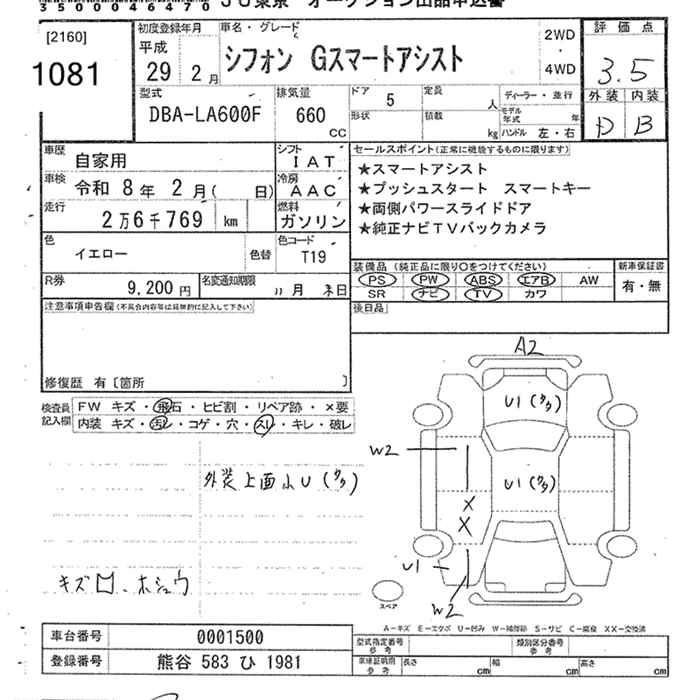 3500046470 JU東京 オークション出品申込書
[2160]
1081
初度登録年月
平成
29 2月
車名・グレード
シフォン Gスマートアシスト
2WD
・
4WD
評価点
3.5
外装 内装
D B
型式
DBA-LA600F
排気量
660
cc
ドア 5
形状
定員 人
積載 kg
ディーラー・並行
モデル年式 年
ハンドル 左・右
車歴 自家用
シフト IAT
車検 令和 8年 2月( 日)
冷房 AAC
走行 2万6千769 km
燃料 ガソリン
色 イエロー 色替
色コード T19
R券 9,200円
名変通知期限 11月 末日
セールスポイント(正常に機能するものに限ります)
★スマートアシスト
★プッシュスタート スマートキー
★両側パワースライドドア
★純正ナビTVバックカメラ
装備品(純正品に限り○をつけてください)
PS PW ABS エアB AW
SR ナビ TV カワ
新車保証書
有・無
注意事項申告欄(不具合内容等は具体的に記入して下さい)
後日品
修復歴 有〔箇所 〕
検査員記入欄
FW キズ・飛石・ヒビ割・リペア跡・×要
内装 キズ・汚レ・コゲ・穴・スレ・キレ・破レ
外装上面小U(多々)
キズ ホシュウ
A2
U1(多々)
W2
U1(多々)
X
X
U1
W2
スペア
A-キズ E-エクボ U-凹み W-補修跡 S-サビ C-腐食 XX-交換済
車台番号 0001500
登録番号 熊谷 583 ひ 1981
型式指定番号 参考
類別区分番号 参考
車庫証明用 参考
長さ cm 幅 cm 高さ cm